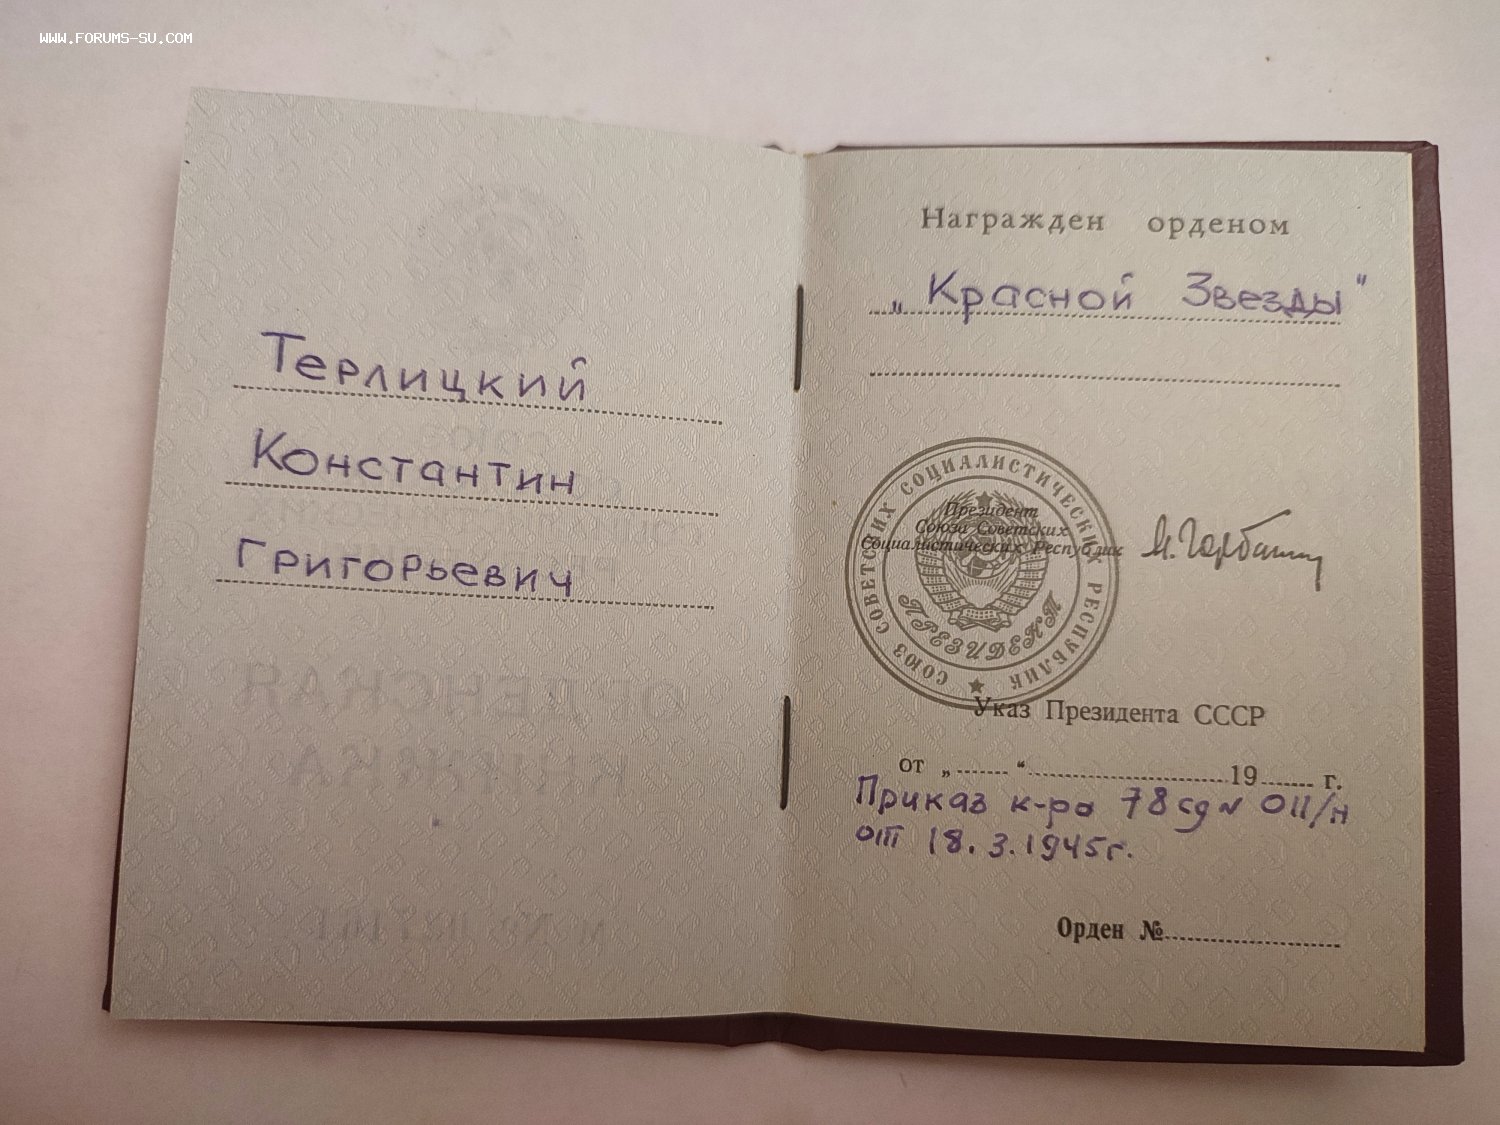 WWW.FORUMS-SU.COM
Терлицкий
Константин
Григорьевич
Награжден орденом
„Красной Звезды"
СОЮЗ СОВЕТСКИХ СОЦИАЛИСТИЧЕСКИХ РЕСПУБЛИК
Президент
Союза Советских
Социалистических Республик
ПРЕЗИДЕНТ
Указ Президента СССР
от „ “ 19 г.
Приказ к-ра 78 сд № 011/н
от 18.3.1945г.
Орден №